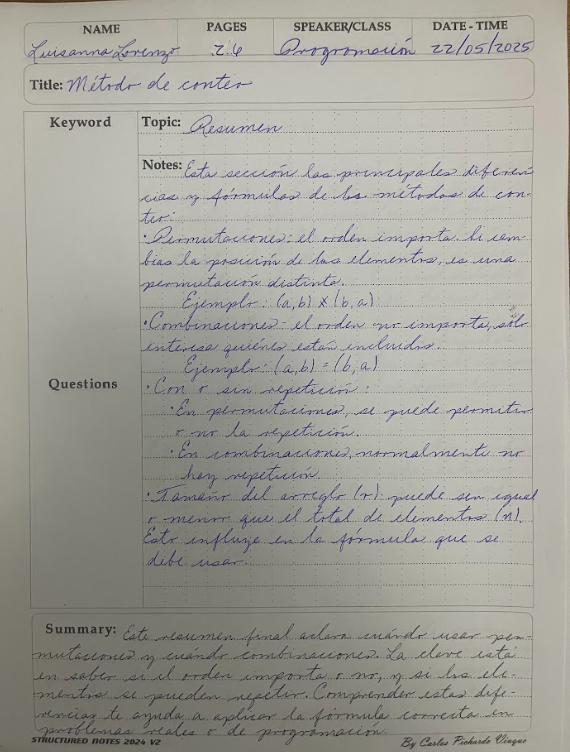 NAME PAGES SPEAKER/CLASS DATE - TIME
Luisanna Lorenzo 2.6 Programación 22/05/2025
Title: Método de conteo
Keyword
Topic: Resumen
Notes: Esta sección las principales diferen
cias y fórmulas de los métodos de con-
teo:
· Permutaciones: el orden importa. Si cam-
bias la posición de los elementos, es una
permutación distinta.
Ejemplo: (a,b) ≠ (b,a)
· Combinaciones - el orden no importa, sólo
interesa quiénes están incluidos.
Ejemplo: (a,b) = (b,a)
Questions
· Con o sin repetición:
· En permutaciones, se puede permitir
o no la repetición.
· En combinaciones, normalmente no
hay repetición.
· Tamaño del arreglo (r) puede ser igual
o menor que el total de elementos (n).
Esto influye en la fórmula que se
debe usar.
Summary: Este resumen final aclara cuándo usar per-
mutaciones y cuándo combinaciones. La clave está
en saber si el orden importa o no, y si los ele-
mentos se pueden repetir. Comprender estas dife-
rencias te ayuda a aplicar la fórmula correcta en
problemas reales o de programación.
STRUCTURED NOTES 2024 V2
By Carlos Pichardo Vinque